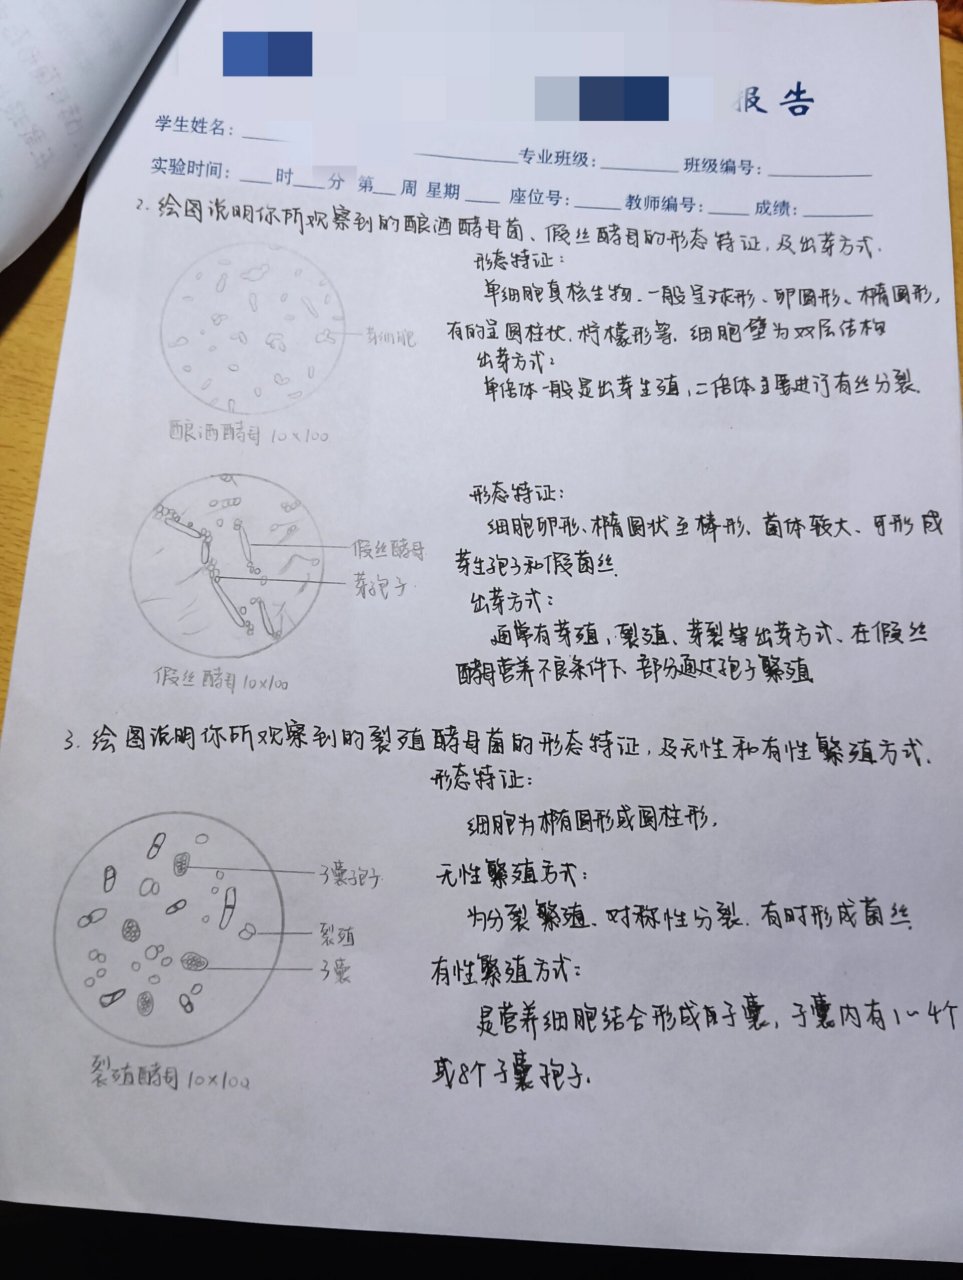 报告
学生姓名：
专业班级： 班级编号：
实验时间： 时 分 第 周 星期 座位号： 教师编号： 成绩：
2. 绘图说明你所观察到的酿酒酵母菌、假丝酵母的形态特征，及出芽方式.
形态特征：
单细胞真核生物. 一般呈球形、卵圆形、椭圆形,
有的呈圆柱状. 柠檬形等. 细胞壁为双层结构
出芽方式：
单倍体一般是出芽生殖, 二倍体主要进行有丝分裂.
芽细胞
酿酒酵母 10×100
形态特征：
细胞卵形、椭圆状至棒形、菌体较大、可形成
芽生孢子和假菌丝.
出芽方式：
通常有芽殖, 裂殖、芽裂等出芽方式、在假丝
酵母营养不良条件下、部分通过孢子繁殖
假丝酵母
芽孢子
假丝酵母 10×100
3. 绘图说明你所观察到的裂殖酵母菌的形态特征, 及无性和有性繁殖方式.
形态特征：
细胞为椭圆形或圆柱形.
无性繁殖方式：
为分裂繁殖、对称性分裂. 有时形成菌丝
有性繁殖方式：
是营养细胞结合形成子囊, 子囊内有1~4个
或8个子囊孢子.
子囊孢子
裂殖
子囊
裂殖酵母 10×100